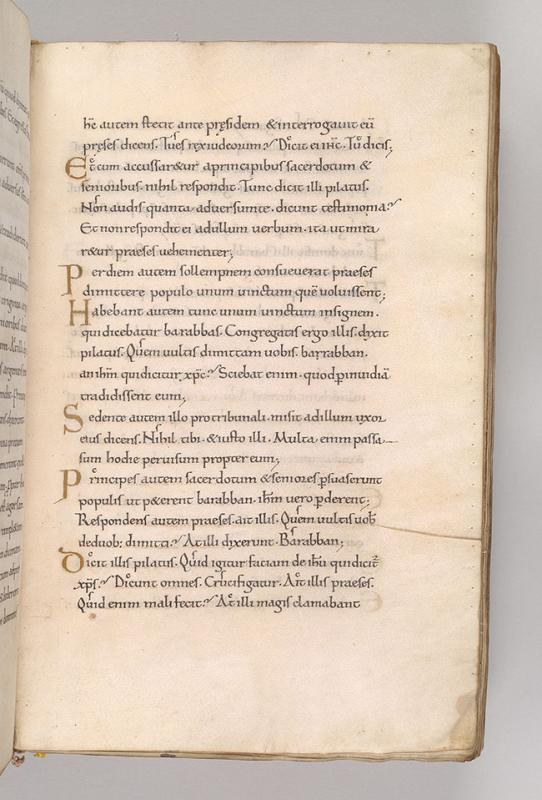 hē autem stetit ante pręsidem. & interrogauit eū
pręses dicens. Tu es rex iudeorum? Dicit ei ihc̄. Tu dicis;
Et cum accusar&ur a principibus sacerdotum &
senioribus. nihil respondit. Tunc dicit illi pilatus.
Non audis quanta aduersum te. dicunt testimonia?
Et non respondit ei ad ullum uerbum. ita ut mira
r&ur praeses uehementer;
Per diem autem sollempnem consueuerat praeses
dimittere populo unum uinctum quē uoluissent;
Habebant autem tunc unum uinctum insignem.
qui dicebatur barabbas. Congregatis ergo illis. dixit
pilatus. Quem uultis dimittam uobis. barrabban.
an ihm̄ qui dicitur xpc̄? Sciebat enim. quod p inuidiā
tradidissent eum;
Sedente autem illo pro tribunali. misit ad illum uxor
eius dicens. Nihil tibi. & iusto illi. Multa enim passa
sum hodie per uisum propter eum;
Principes autem sacerdotum & seniores psuaserunt
populis ut p&erent barabban. ihm̄ uero pderent;
Respondens autem praeses. ait illis. Quem uultis uob
de duob; dimitti? At illi dixerunt. Barabban;
Dicit illis pilatus. Quid igitur faciam de ihū qui dicit
xps̄? Dicunt omnes. Crucifigatur. Ait illis praeses.
Quid enim mali fecit? At illi magis clamabant